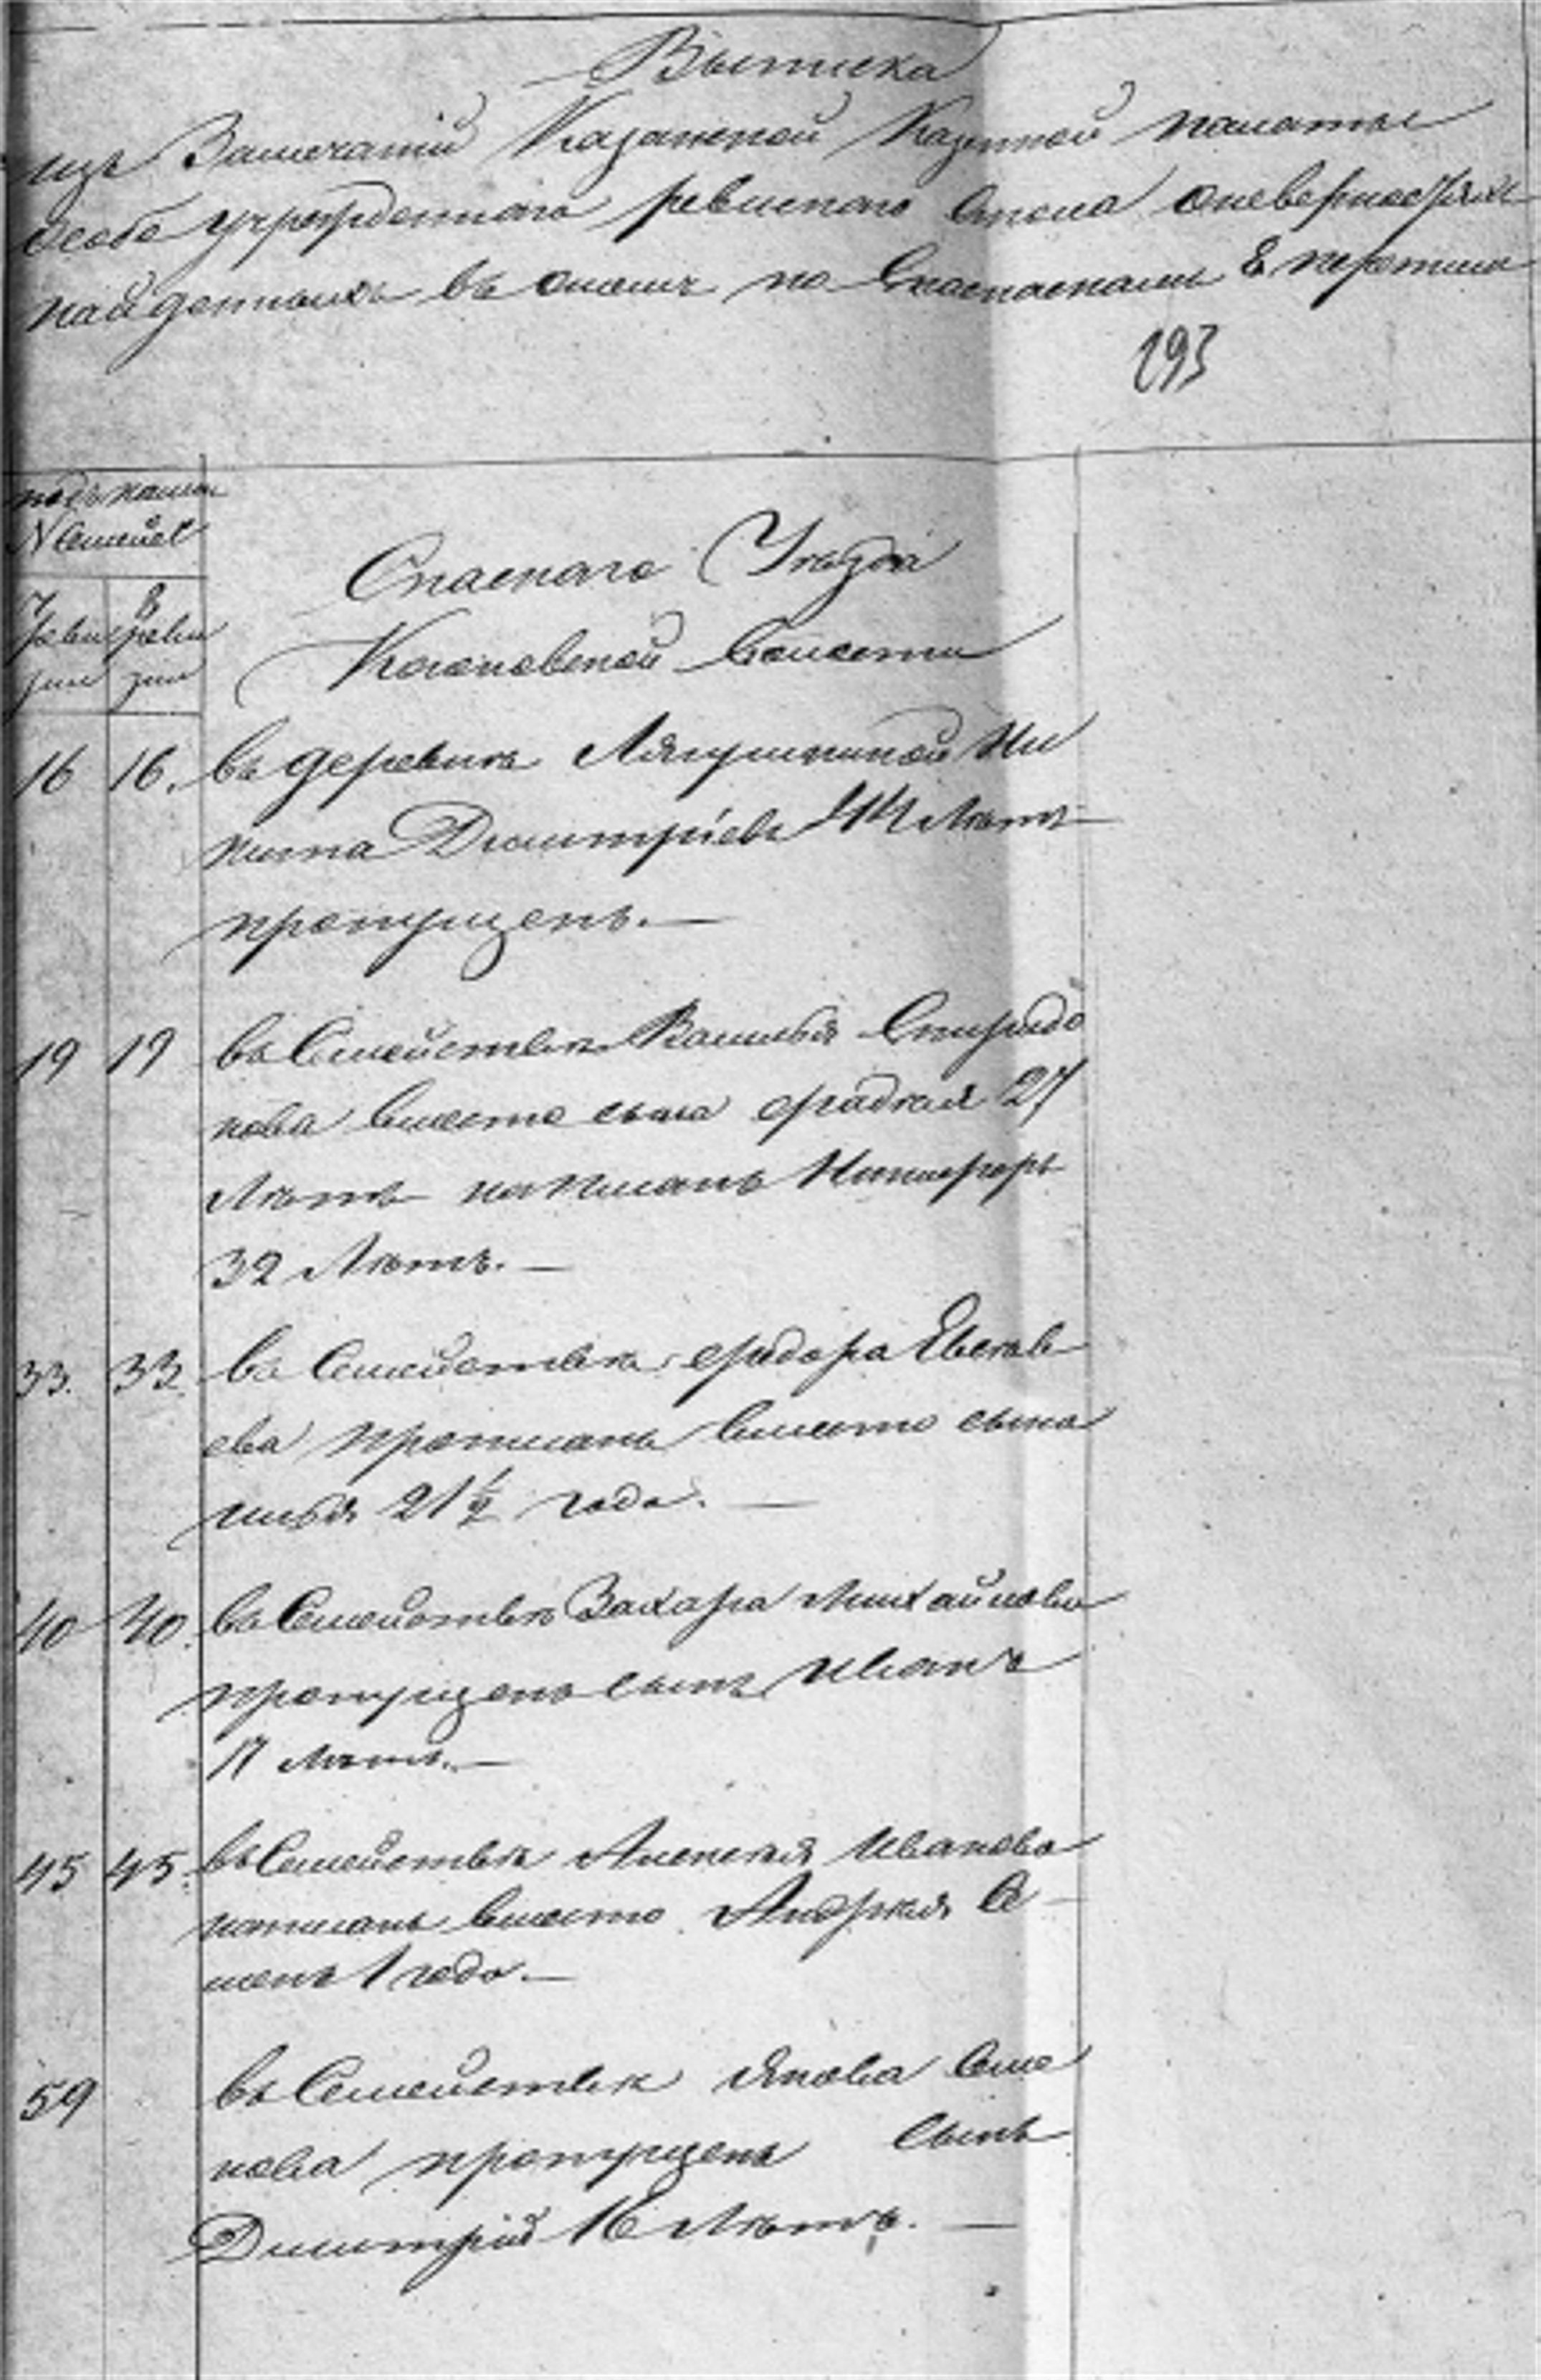 Выписка
изъ Замечаній Казанской Казенной палаты
особо учрежденнаго ревизскаго Стола о неверностяхъ
найденныхъ въ онома по Спасскому 8. переписи
293
подъ каким
№ Семей
7 ревизии
8 ревизии
Спаскаго Уѣзда
Волости
16 16. въ деревнѣ Лягушкиной Ни
кита Дмитріевъ 44 Лѣтъ
пропущенъ. —
19 19 въ Семействѣ Василья Спиридо
нова вместо сына Фадѣя 27
Лѣтъ написанъ Никифоръ
32 Лѣтъ. —
33. 33. въ Семействѣ Федора Евсѣв
ева прописанъ вместо сына
21 1/2 года. —
40 40. въ Семействѣ Захара Михайлова
пропущенъ сынъ Иванъ
17 Лѣтъ. —
45 45. въ Семействѣ Алексѣя Иванова
написанъ вместо Андрѣя Се-
менъ 1 года. —
59 въ Семействѣ Якова Семе
нова пропущенъ Сынъ
Димитрій 16 Лѣтъ. —